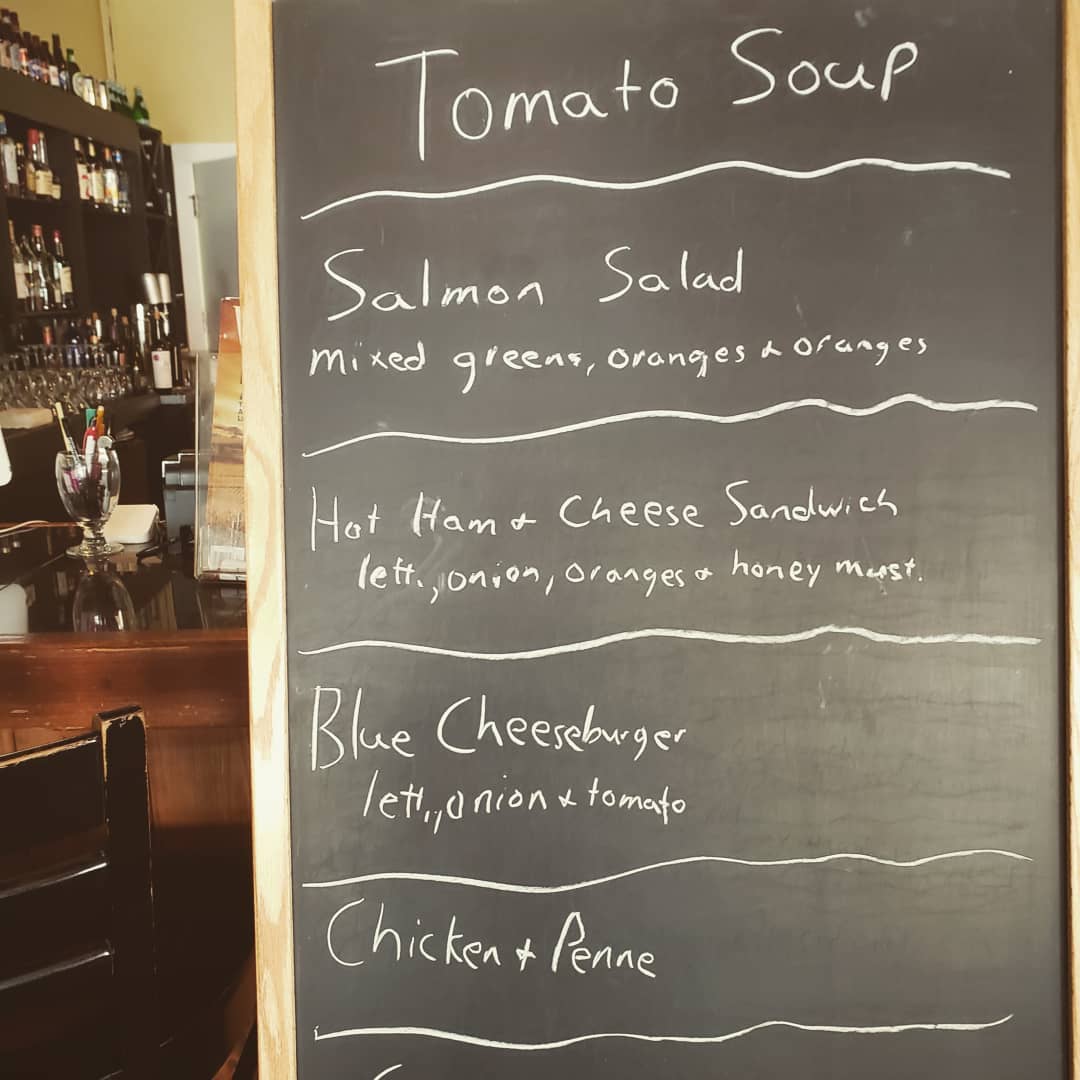 Tomato Soup
Salmon Salad
mixed greens, oranges & oranges
Hot Ham & Cheese Sandwich
lett., onion, oranges & honey must.
Blue Cheeseburger
lett., onion & tomato
Chicken & Penne